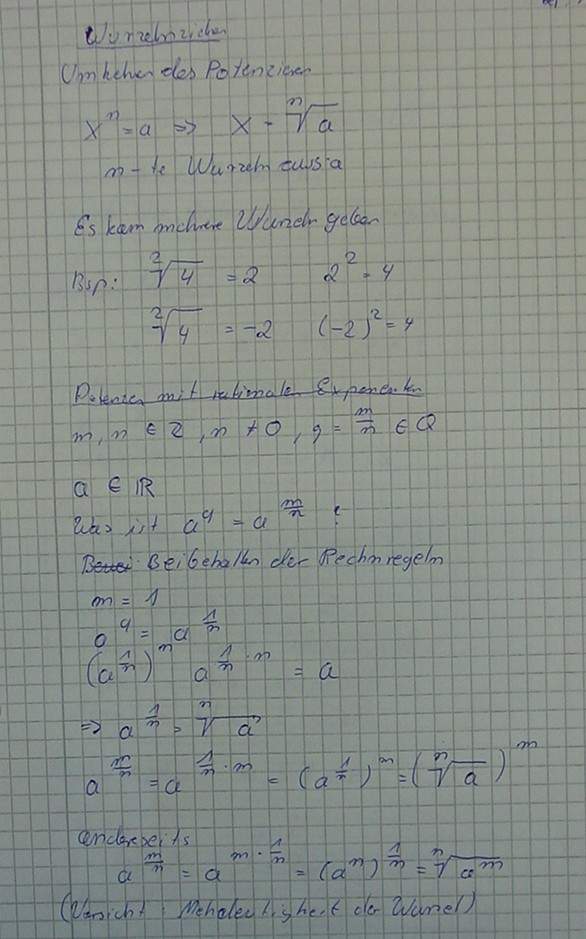 Wurzelnziehen
Umkehren des Potenzieren
xⁿ = a ⇒ x = ⁿ√a
n-te Wurzeln aus a
Es kann mehrere Wurzeln geben
Bsp: ²√4 = 2 2² = 4
²√4 = -2 (-2)² = 4
Potenzen mit rationalen Exponenten
m, n ∈ Z, n ≠ 0, q = m/n ∈ Q
a ∈ ℝ
Was ist a^q = a^(m/n) ?
Beibehalten der Rechnregeln
m = 1
a^q = a^(1/n)
(a^(1/n))^n a^(1/n · n) = a
⇒ a^(1/n) = ⁿ√a
a^(m/n) = a^(1/n · m) = (a^(1/n))^m = (ⁿ√a)^m
andererseits
a^(m/n) = a^(m · 1/n) = (a^n)^(1/n) = ⁿ√a^m
(Vorsicht: Mehrdeutigkeit der Wurzel)